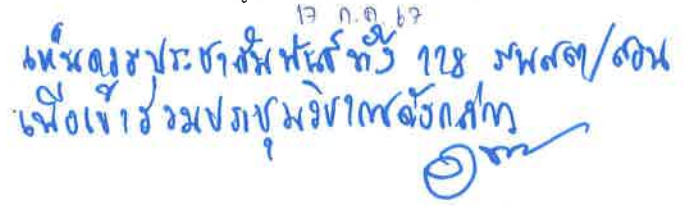 17 ก.ค. 67
เห็นควรประชาสัมพันธ์ทั้ง 128 รพสต/สอน
เพื่อเข้าร่วมประชุมวิชาการดังกล่าว